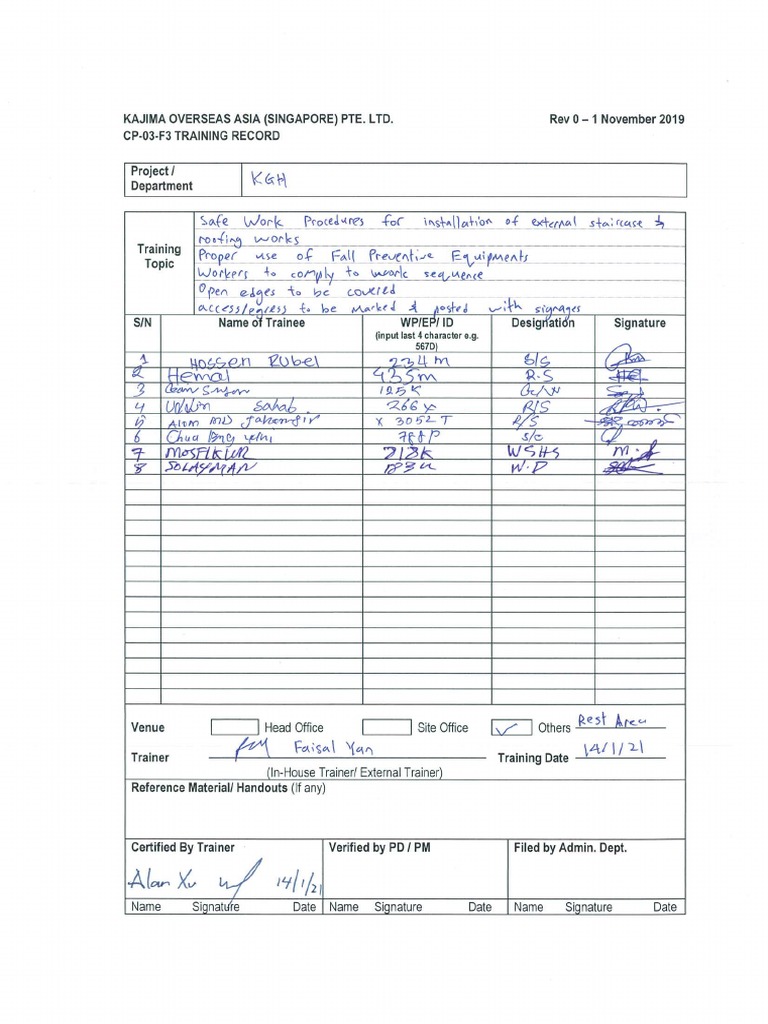 KAJIMA OVERSEAS ASIA (SINGAPORE) PTE. LTD. Rev 0 – 1 November 2019
CP-03-F3 TRAINING RECORD
Project / Department KGH
Training Topic
Safe Work Procedures for installation of external staircase &
roofing works
Proper use of Fall Preventive Equipments
Workers to comply to work sequence
Open edges to be covered
access/egress to be marked & posted with signages
S/N Name of Trainee WP/EP/ ID Designation Signature
(input last 4 character e.g.
567D)
1 HOSSEN RUBEL 234M S/S
2 Hemal 435M R.S
3 125K
4 Sahab 266X R/S
5 Alom MD Jahangir X 3052 T R/S
6 Chua 788P S/C
7 MOSFIKUR 218K WSHS
8 SOLAYMAN W.D
Venue Head Office Site Office ✓ Others Rest Area
Trainer Faisal Yan Training Date 14/1/21
(In-House Trainer/ External Trainer)
Reference Material/ Handouts (If any)
Certified By Trainer Verified by PD / PM Filed by Admin. Dept.
Alan Xu 14/1/21
Name Signature Date Name Signature Date Name Signature Date